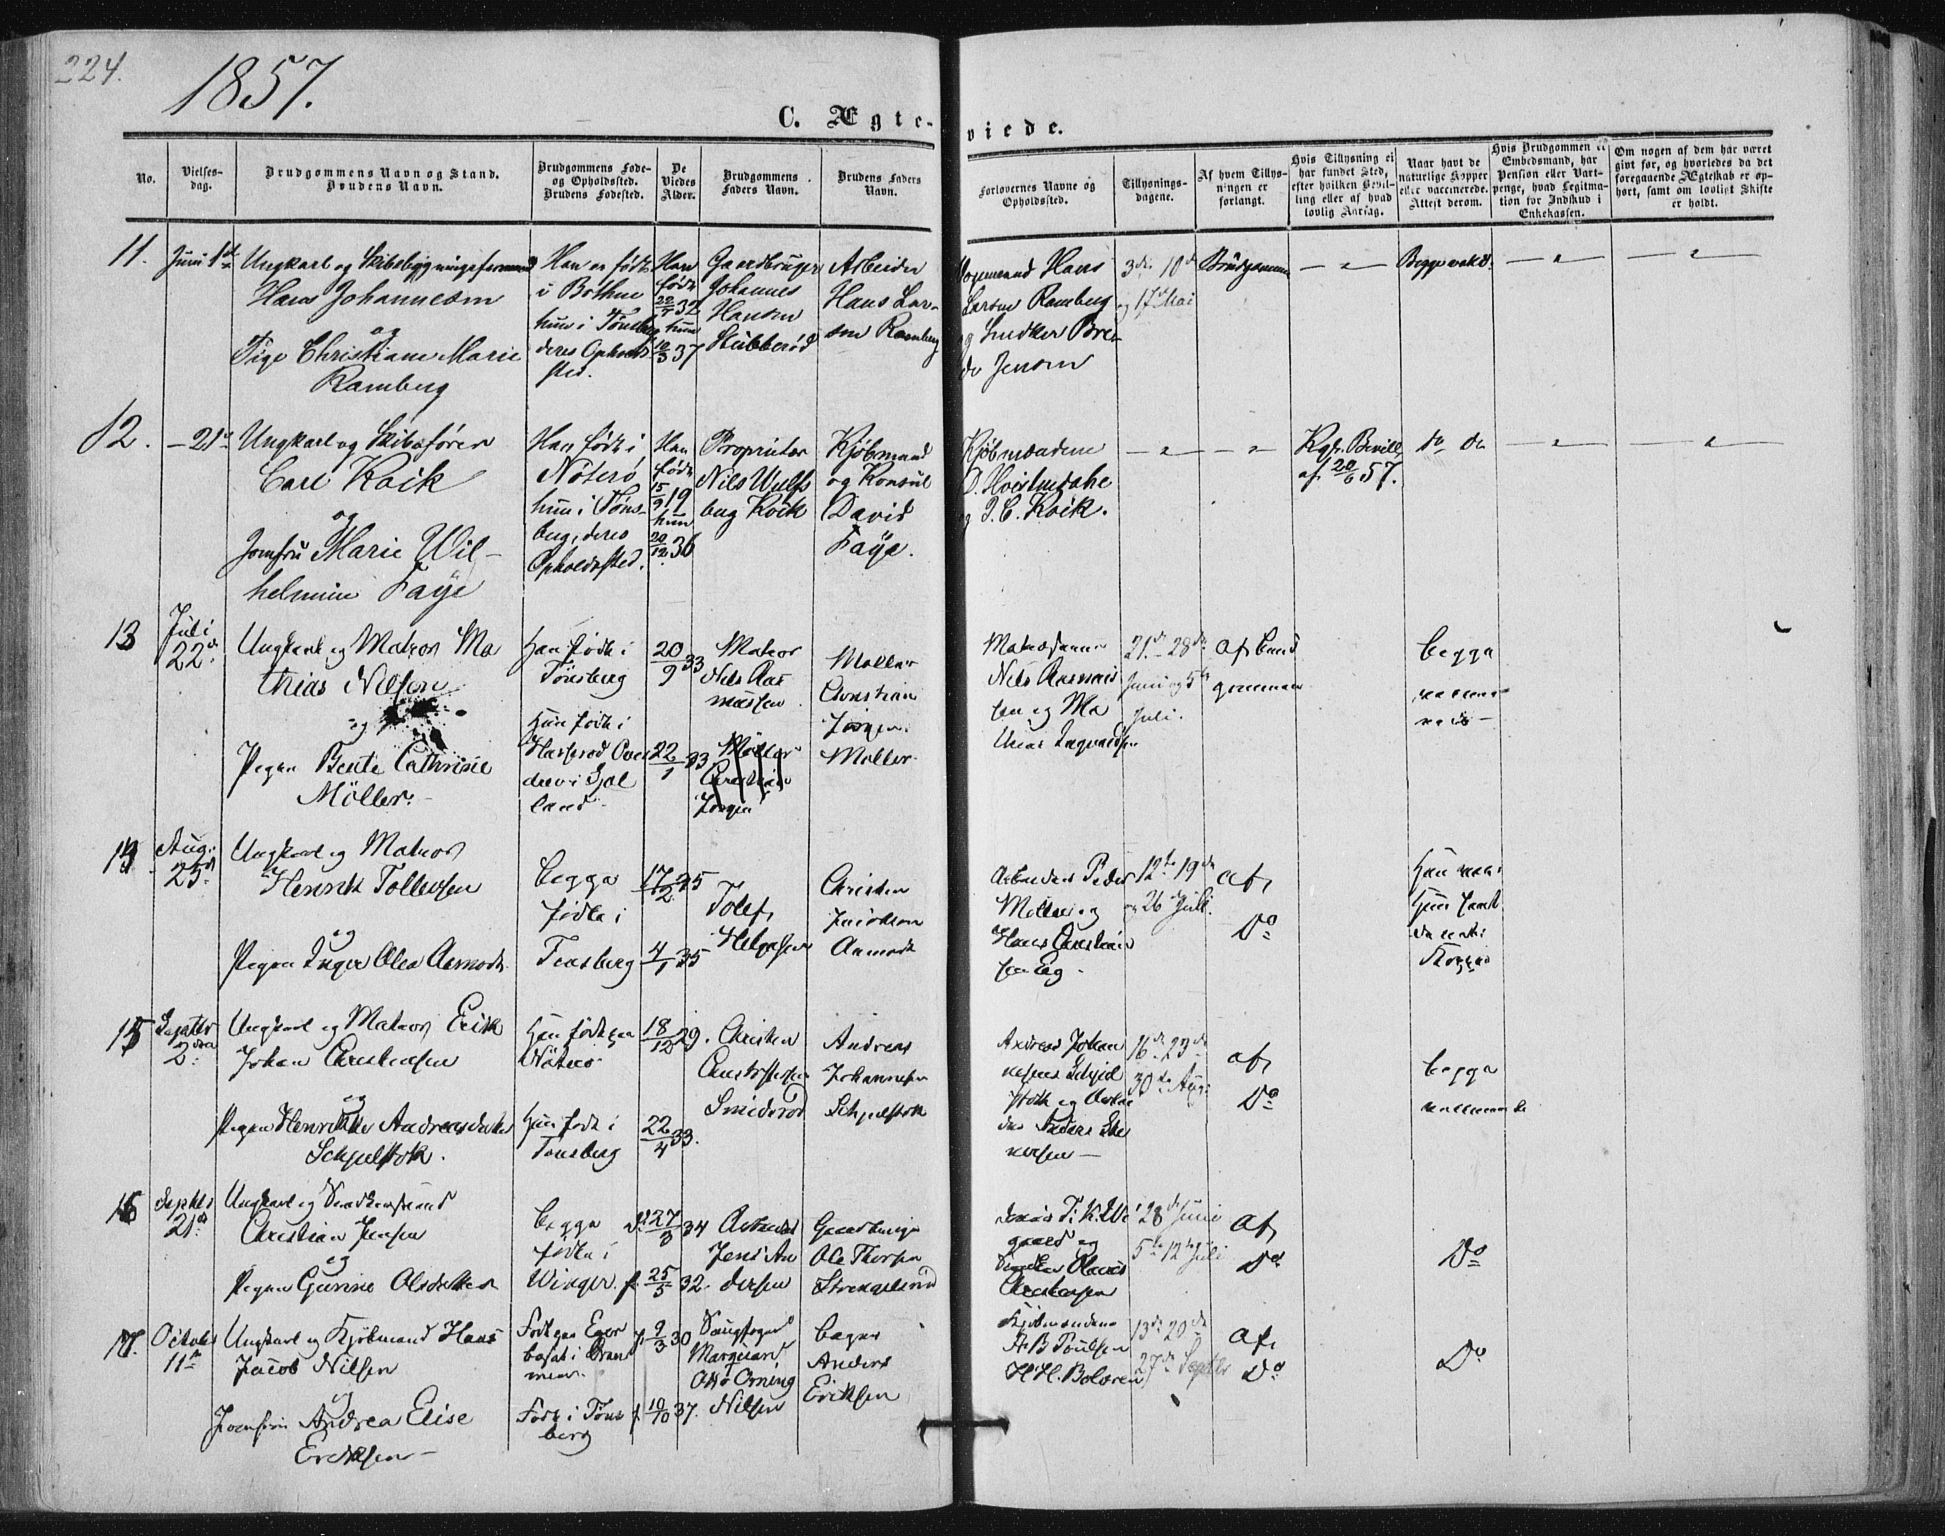 224.
1857.
C. Ægteviede.
No.
Vielsesdag.
Brudgommens Navn og Stand.
Brudens Navn.
Brudgommens Føde-
og Opholdssted.
Brudens Fødested.
De
Viedes
Alder.
Brudgommens
Faders Navn.
Brudens Faders
Navn.
Forlovernes Navne og
Opholdssted.
Tillysnings-
dagene.
Af hvem Tillys-
ningen er
forlangt.
Hvis Tillysning ei
har fundet Sted,
efter hvilken Bevil-
ling eller af hvad
lovlig Aarsag.
Naar havt de
naturlige Kopper
eller vaccinerede.
Attest derom.
Hvis Brudgommen er
Embedsmand, har
Pension eller Vart-
penge, hvad Legitma-
tion for Indskud i
Enkekassen.
Om nogen af dem har været
givt før, og hvorledes da det
foregaaende Ægteskab er op-
hørt, samt om lovligt Skifte
er holdt.
11.
Juni 1ste
Ungkarl og Skibsbygningsformand
Hans Johannesen
og
Pige Christiane Marie
Ramberg
Han er født
i Bothne
hun i Tønsberg
deres Opholds-
sted.
Han
født
32
hun
12/3 37
Gaardbruger
Johannes
Hansen
Stubberød
Arbeider
Hans Lar-
sen Ramberg
Hans
Larsen Ramberg
og Snedker Bre-
de Jensen
3die 10de
og 17de Mai
Brudgommen
Begge vakd.
12.
21de
Ungkarl og Skibsfører
Carl Kock
og
Jomfru Marie Wil-
helmine Faye
Han født i
Nøterø
hun i Tøns-
berg, deres
Opholdssted.
Han
født
15/9 19
hun
20/12 36
Proprietær
Nils Wulfs
berg Kock
Kjøbmand
og Konsul
David
Faye.
Kjøbmændene
og
Kgl. Bevill.
af 20/6 57.
do do
13
Juli
22de
Ungkarl og Matros Ma
thias Nilsen
og
Pigen Bente Cathrine
Möller.
Han født i
Tönsberg
Hun født i
i Sjæl
land
20/9 33
22/1 33
Matros
Nils Ras
mussen
Möller
Christian
Jørgen
Møller
Christian
Jörgen
Möller
Nils Rasmus
sen og Ma
thias
21de 28de
Juni og 5te
Juli.
af Brud
gommen
begge
14
Aug.
23de
Ungkarl og Matros
Henrik Tollefsen
og
Pigen Inger Olea Aamodt
begge
födte i
Tönsberg
17/12 25
4/1 35
Tolef
Helgesen
Christen
Jacobsen
Aamodt
Arbeider Peder
Möller og
Hans Christian
sen
12te 19de
og 26de Juli.
af
Do
15
Septbr
2den
Ungkarl og Matros Erik
Johan Christensen
og
Pigen Henrikke Andreasdatter
Schjelstok.
Han född paa
Nöterö
Hun född i
Tönsberg
18/12 29.
22/4 33.
Christen
Christofersen
Smidsrød
Andreas
Johannesen
Schjelstok
Andreas Johan
nesen
16de 23de
30te Aug.
af
Do
begge
16
Septbr
21de
Ungkarl og Snedkersvend
Christian Jensen
og
Pigen Gurine Olsdatter
begge
födte i
Winger
27/3 34
f. 25/5 32.
Arbeider
Jens An
dersen
Gaardbruger
Ole Thorsen
gaard og
Snedker Olaus
Christensen
28de Juni
5te 12te Juli
af
Do
Do
17.
October
11te
Ungkarl og Kjöbmand Hans
Jacob Nilsen
og
Jomfru Andrea Elise
Eriksen
Född paa Eger
bosat i Dram
men.
Född i Töns
berg
f. 9/3 30
f. 10/10 37.
Otto Orning
Nilsen
bager
Anders
Eriksen
Kjöbmændene
A B Poulsen
H. H. Bolæren
13de 20de
27de Septbr
af
Do
Do